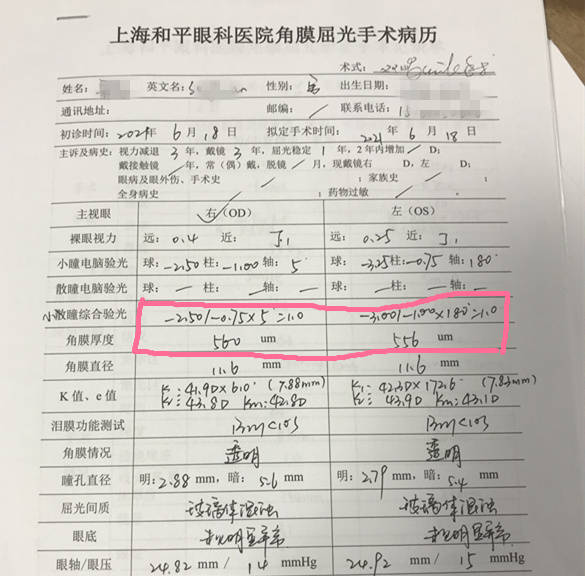 上海和平眼科医院角膜屈光手术病历
术式:
姓名: 英文名: 性别: 出生日期:
通讯地址: 邮编: / 联系电话:
初诊时间: 2021年 6 月 18 日 拟定手术时间: 2021 年 6 月 18 日
主诉及病史: 视力减退 3 年, 戴镜 3 年, 屈光稳定 1 年, 2年内增加 / D;
戴接触镜 / 年, 常(偶)戴, 脱镜 / 月, 现戴镜右 D, 左 D;
眼病及眼外伤、手术史 / ; 家族史 / ;
全身病史 / ; 药物过敏 / ;
主视眼 ✓右(OD) 左(OS)
裸眼视力 远: 0.4 近: J1 远: 0.25 近: J1
小瞳电脑验光 球: -2.50 柱: -1.00 轴: 5° 球: -3.25 柱: -0.75 轴: 180°
散瞳电脑验光 球: — 柱: — 轴: — 球: — 柱: — 轴: —
小散瞳综合验光 -2.50/-0.75×5°=1.0 -3.00/-1.00×180°=1.0
角膜厚度 560 um 556 um
角膜直径 11.6 mm 11.6 mm
K 值、e 值 K1: 41.9D×6.0° (7.88mm) K1: 42.3D×172.6° (7.83mm)
K2: 43.8D Km: 42.8D K2: 43.9D Km: 43.1D
泪膜功能测试 Bm<10s Bm<10s
角膜情况 透明 透明
瞳孔直径 明: 2.88 mm, 暗: 5.6 mm 明: 2.79 mm, 暗: 5.4 mm
屈光间质 玻璃体混浊 玻璃体混浊
眼底 未见明显异常 未见明显异常
眼轴/眼压 24.82 mm / 14 mmHg 24.92 mm / 15 mmHg